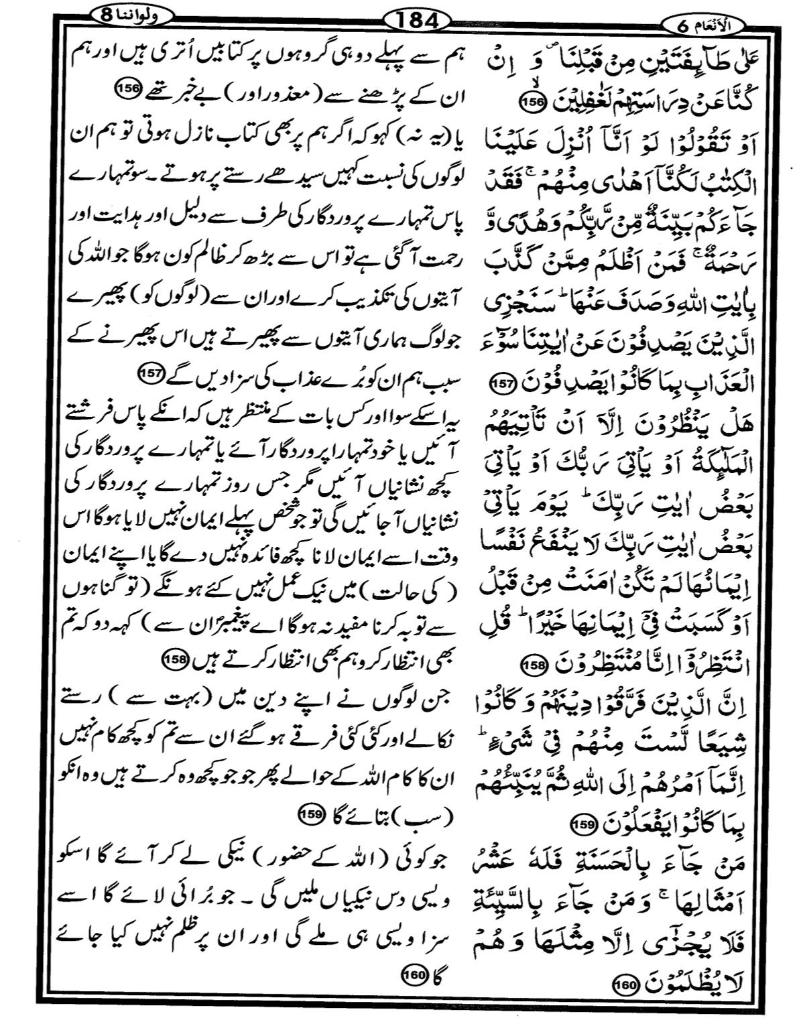 الانعام 6
184
ولواننا 8
عَلٰى طَآئِفَتَيْنِ مِنْ قَبْلِنَا ۪ وَ اِنْ
كُنَّا عَنْ دِرَاسَتِهِمْ لَغٰفِلِيْنَ ۙ 156
اَوْ تَقُوْلُوْا لَوْ اَنَّآ اُنْزِلَ عَلَيْنَا
الْكِتٰبُ لَكُنَّآ اَهْدٰى مِنْهُمْ ۚ فَقَدْ
جَآءَكُمْ بَيِّنَةٌ مِّنْ رَّبِّكُمْ وَهُدًى وَّ
رَحْمَةٌ ۚ فَمَنْ اَظْلَمُ مِمَّنْ كَذَّبَ
بِاٰيٰتِ اللّٰهِ وَصَدَفَ عَنْهَا ؕ سَنَجْزِى
الَّذِيْنَ يَصْدِفُوْنَ عَنْ اٰيٰتِنَا سُوْٓءَ
الْعَذَابِ بِمَا كَانُوْا يَصْدِفُوْنَ 157
هَلْ يَنْظُرُوْنَ اِلَّآ اَنْ تَاْتِيَهُمُ
الْمَلٰٓئِكَةُ اَوْ يَاْتِىَ رَبُّكَ اَوْ يَاْتِىَ
بَعْضُ اٰيٰتِ رَبِّكَ ؕ يَوْمَ يَاْتِىْ
بَعْضُ اٰيٰتِ رَبِّكَ لَا يَنْفَعُ نَفْسًا
اِيْمَانُهَا لَمْ تَكُنْ اٰمَنَتْ مِنْ قَبْلُ
اَوْ كَسَبَتْ فِىْٓ اِيْمَانِهَا خَيْرًا ؕ قُلِ
انْتَظِرُوْٓا اِنَّا مُنْتَظِرُوْنَ 158
اِنَّ الَّذِيْنَ فَرَّقُوْا دِيْنَهُمْ وَكَانُوْا
شِيَعًا لَّسْتَ مِنْهُمْ فِىْ شَىْءٍ ؕ
اِنَّمَآ اَمْرُهُمْ اِلَى اللّٰهِ ثُمَّ يُنَبِّئُهُمْ
بِمَا كَانُوْا يَفْعَلُوْنَ 159
مَنْ جَآءَ بِالْحَسَنَةِ فَلَهٗ عَشْرُ
اَمْثَالِهَا ۚ وَمَنْ جَآءَ بِالسَّيِّئَةِ
فَلَا يُجْزٰٓى اِلَّا مِثْلَهَا وَهُمْ
لَا يُظْلَمُوْنَ 160
ہم سے پہلے دو ہی گروہوں پر کتابیں اُتری ہیں اور ہم
ان کے پڑھنے سے (معذور اور) بے خبر تھے 156
یا (یہ نہ) کہو کہ اگر ہم پر بھی کتاب نازل ہوتی تو ہم ان
لوگوں کی نسبت کہیں سیدھے رستے پر ہوتے ۔ سو تمہارے
پاس تمہارے پروردگار کی طرف سے دلیل اور ہدایت اور
رحمت آ گئی ہے تو اس سے بڑھ کر ظالم کون ہو گا جو اللہ کی
آیتوں کی تکذیب کرے اور ان سے (لوگوں کو) پھیرے
جو لوگ ہماری آیتوں سے پھیرتے ہیں اس پھیرنے کے
سبب ہم ان کو بُرے عذاب کی سزا دیں گے 157
یہ اسکے سوا اور کس بات کے منتظر ہیں کہ انکے پاس فرشتے
آئیں یا خود تمہارا پروردگار آئے یا تمہارے پروردگار کی
کچھ نشانیاں آئیں مگر جس روز تمہارے پروردگار کی
نشانیاں آ جائیں گی تو جو شخص پہلے ایمان نہیں لایا ہو گا اس
وقت اسے ایمان لانا کچھ فائدہ نہیں دے گا یا اپنے ایمان
(کی حالت) میں نیک عمل نہیں کئے ہونگے (تو گناہوں
سے توبہ کرنا مفید نہ ہو گا اے پیغمبرؐ ان سے) کہہ دو کہ تم
بھی انتظار کرو ہم بھی انتظار کرتے ہیں 158
جن لوگوں نے اپنے دین میں (بہت سے) رستے
نکالے اور کئی کئی فرقے ہو گئے ان سے تم کو کچھ کام نہیں
ان کا کام اللہ کے حوالے پھر جو جو کچھ وہ کرتے ہیں وہ انکو
(سب) بتائے گا 159
جو کوئی (اللہ کے حضور) نیکی لے کر آئے گا اسکو
ویسی دس نیکیاں ملیں گی ۔ جو بُرائی لائے گا اسے
سزا ویسی ہی ملے گی اور ان پر ظلم نہیں کیا جائے
گا 160